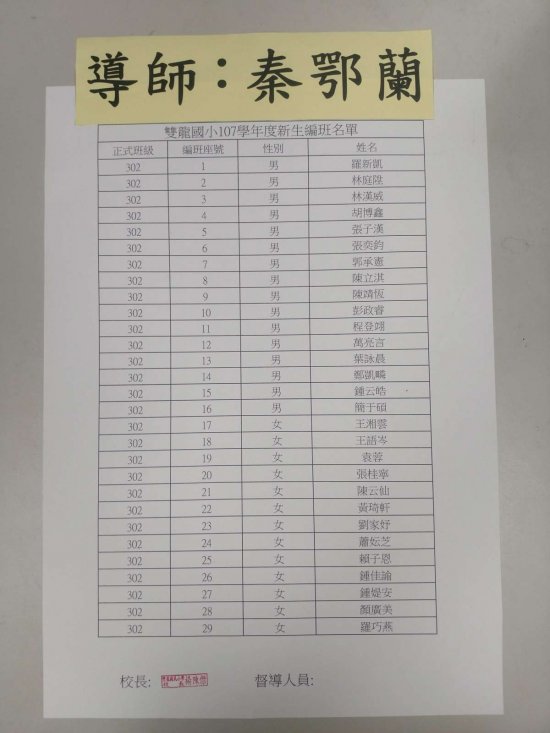 導師：秦鄂蘭
雙龍國小107學年度新生編班名單
正式班級 編班座號 性別 姓名
302 1 男 羅新凱
302 2 男 林庭陞
302 3 男 林漢威
302 4 男 胡博鑫
302 5 男 張子漢
302 6 男 張奕鈞
302 7 男 郭承憲
302 8 男 陳立淇
302 9 男 陳靖恆
302 10 男 彭政睿
302 11 男 程登翊
302 12 男 萬亮言
302 13 男 葉詠晨
302 14 男 鄭凱疄
302 15 男 鍾云皓
302 16 男 簡于碩
302 17 女 王湘雲
302 18 女 王語岑
302 19 女 袁蓉
302 20 女 張桂寧
302 21 女 陳云仙
302 22 女 黃琦軒
302 23 女 劉家妤
302 24 女 蕭妘芝
302 25 女 賴子恩
302 26 女 鍾佳諭
302 27 女 鍾媞安
302 28 女 顏廣美
302 29 女 羅巧燕
校長: 督導人員: